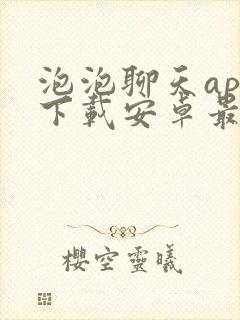 泡泡聊天ap
下載安卓最
櫻空靈曦